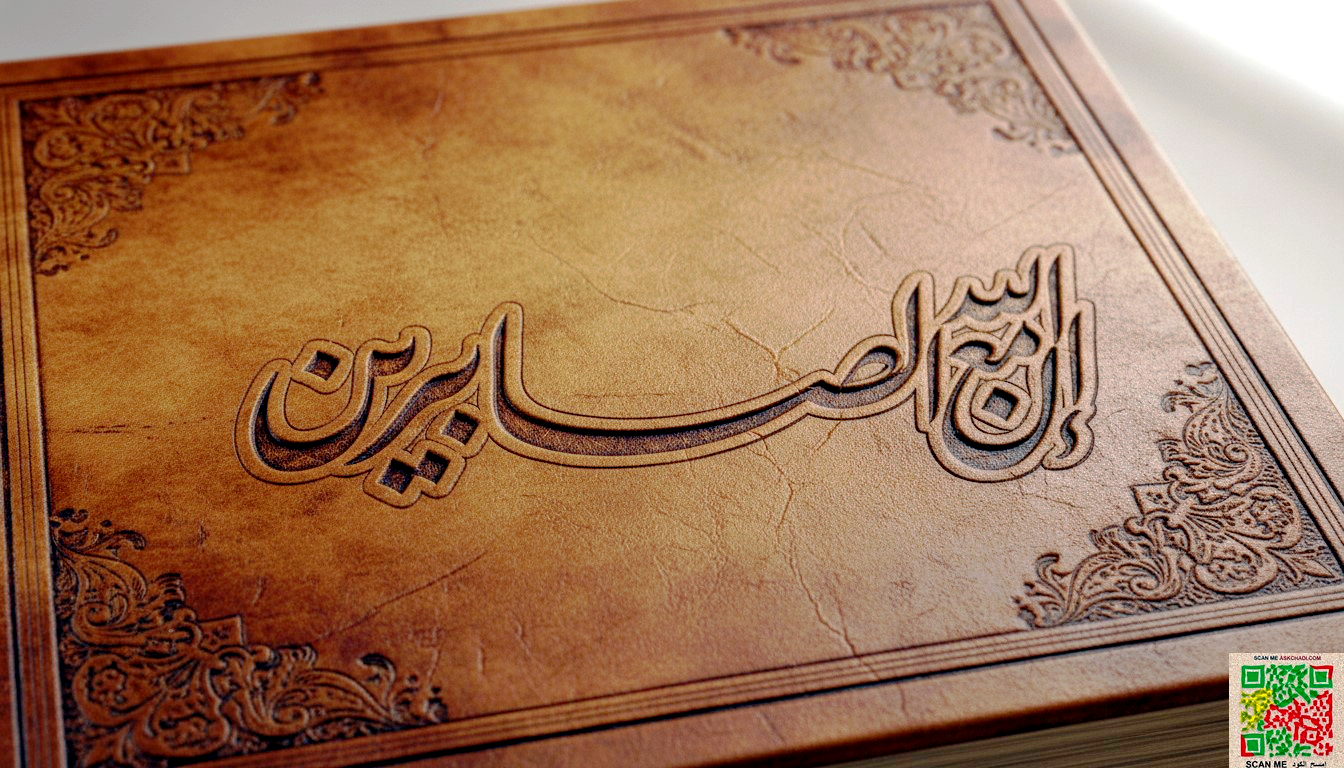 إن الله مع الصابرين
SCAN ME ASKCHADI.COM
SCAN ME امسح الكود